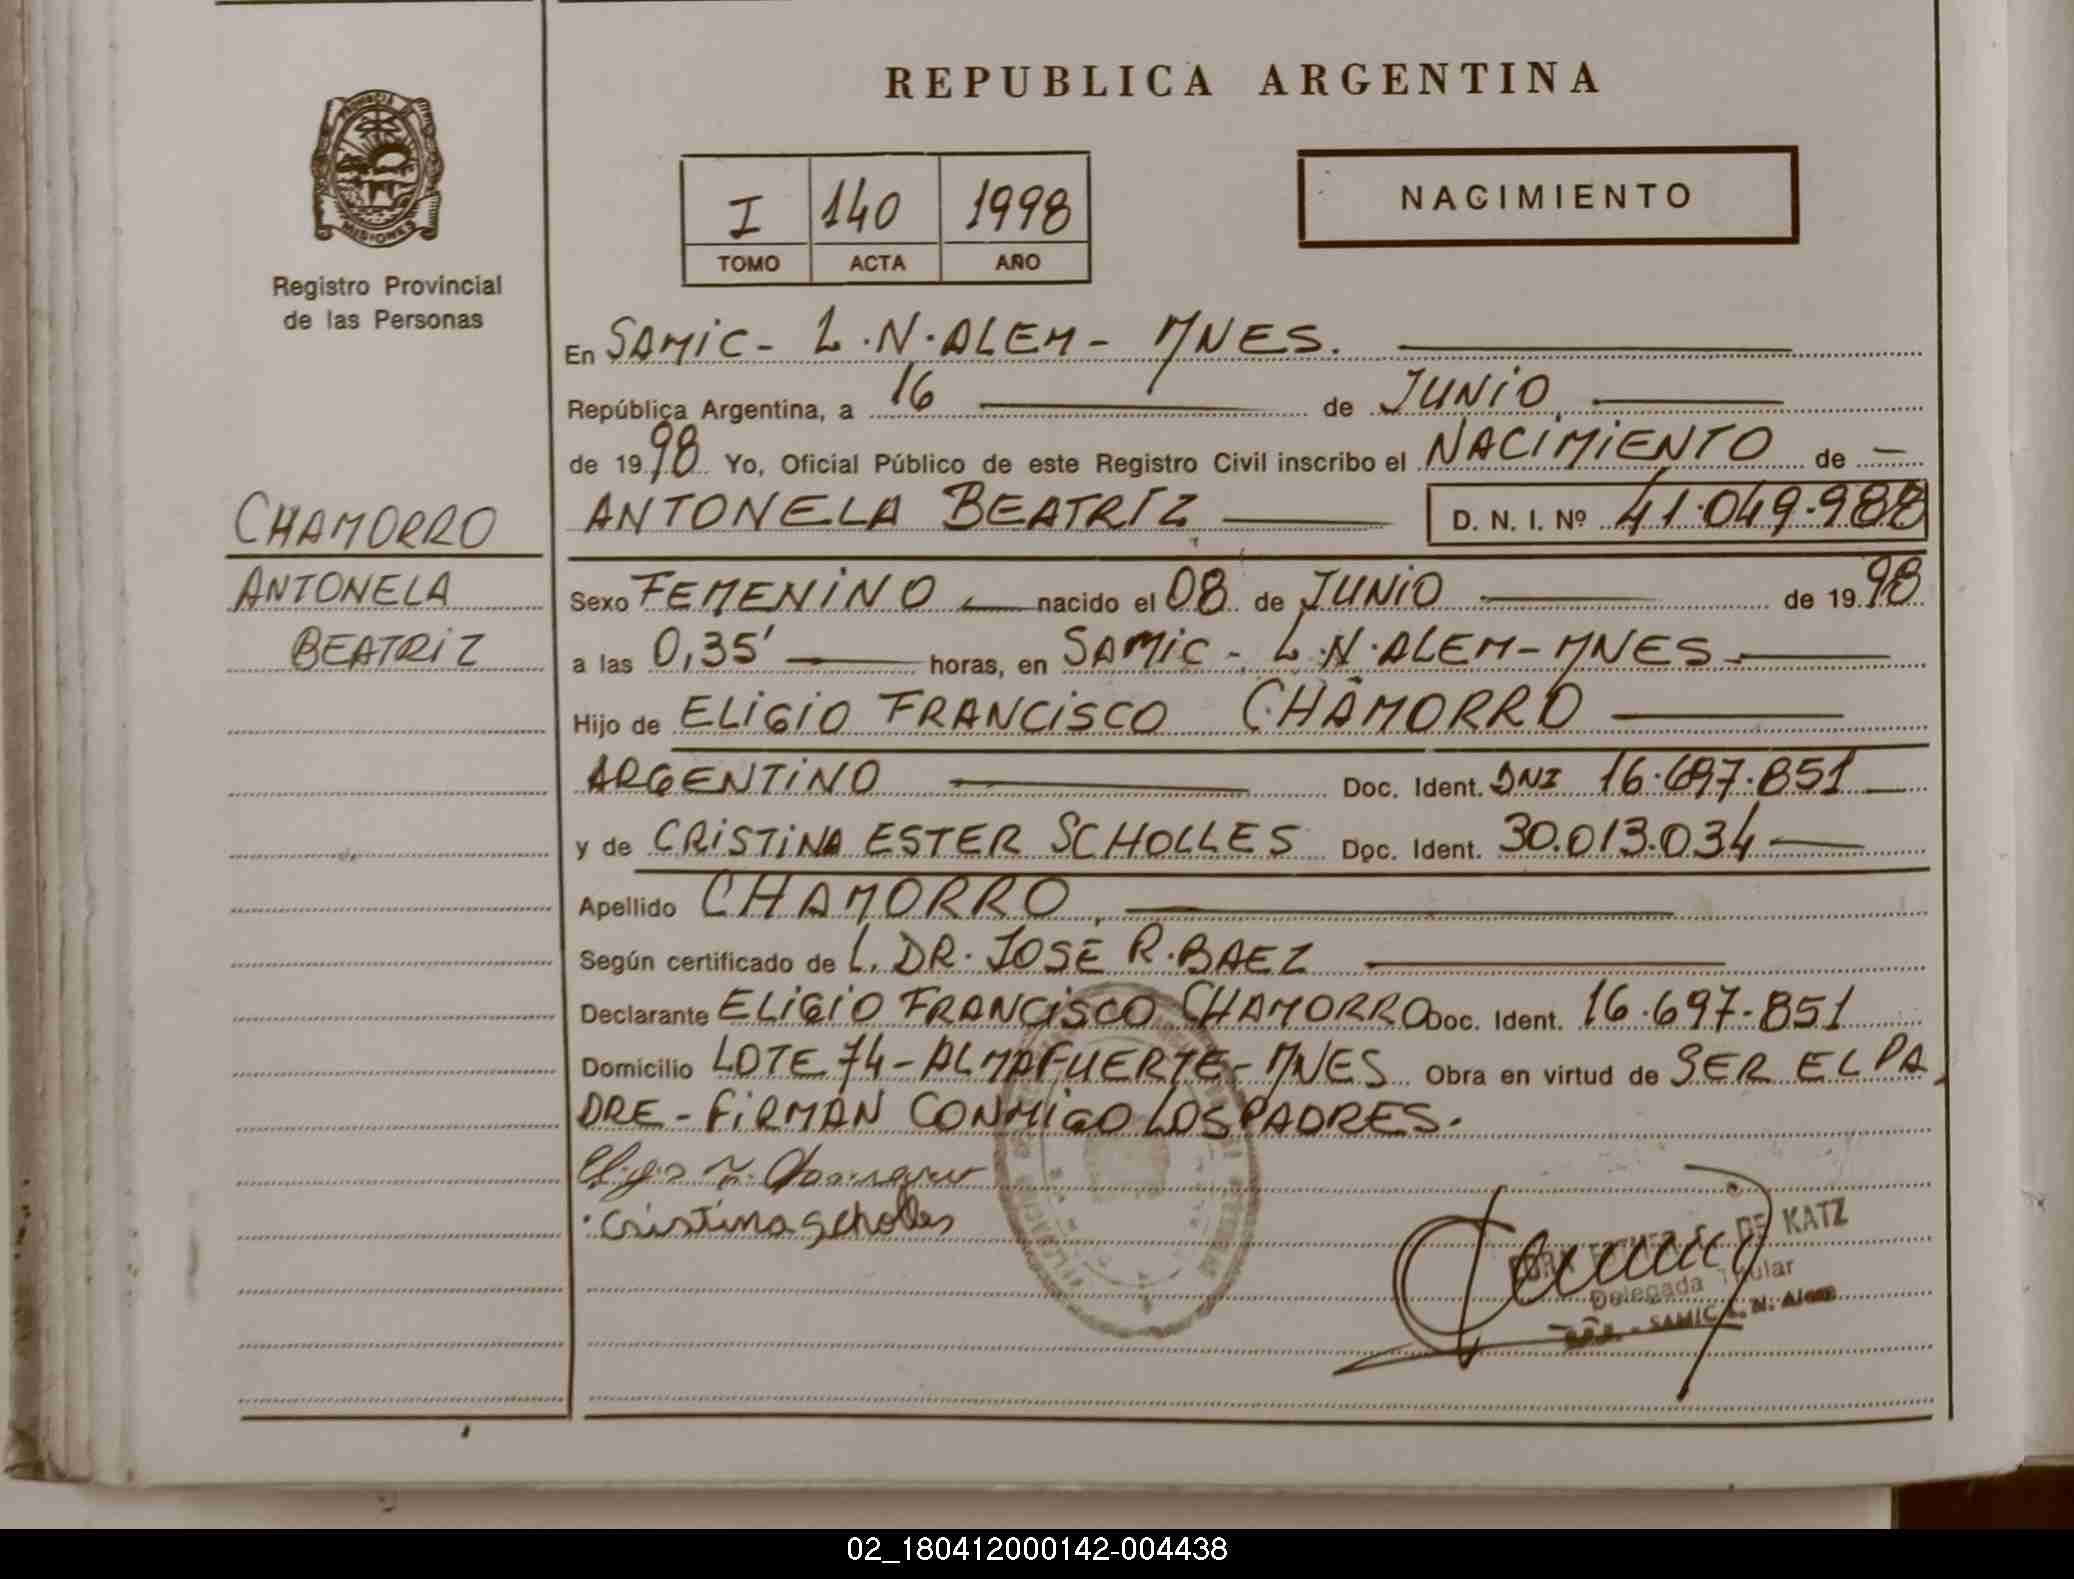 REPUBLICA ARGENTINA
MISIONES
Registro Provincial
de las Personas
I 140 1998
TOMO ACTA AÑO
NACIMIENTO
En SAMIC - L.N. ALEM - MNES.
República Argentina, a 16 de JUNIO
de 1998 Yo, Oficial Público de este Registro Civil inscribo el NACIMIENTO de
ANTONELA BEATRIZ D. N. I. Nº 41.049.988
CHAMORRO
ANTONELA
BEATRIZ
Sexo FEMENINO nacido el 08 de JUNIO de 1998
a las 0,35' horas, en SAMIC - L.N. ALEM - MNES
Hijo de ELIGIO FRANCISCO CHAMORRO
ARGENTINO Doc. Ident. DNI 16.697.851
y de CRISTINA ESTER SCHOLLES Doc. Ident. 30.013.034
Apellido CHAMORRO
Según certificado de L. DR. JOSE R. BAEZ
Declarante ELIGIO FRANCISCO CHAMORRO Doc. Ident. 16.697.851
Domicilio LOTE 74 - ALMAFUERTE - MNES Obra en virtud de SER EL PA
DRE - FIRMAN CONMIGO LOS PADRES.
Cristina Scholles
DE KATZ
Delegada Titular
SAMIC L. N. Alem
02_180412000142-004438